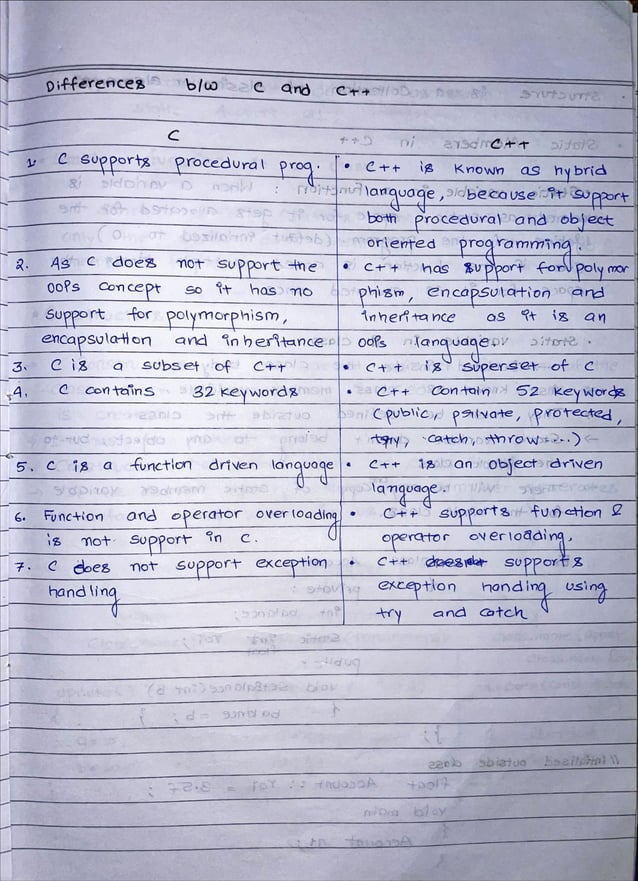 Differences b/w C and C++
C C++
1. C supports procedural prog. • C++ is known as hybrid
language, because it support
both procedural and object
oriented programming.
2. As C does not support the • C++ has support for polymor
OOPs concept so it has no phism, encapsulation and
support for polymorphism, inheritance as it is an
encapsulation and inheritance OOPs language.
3. C is a subset of C++ • C++ is superset of C
4. C contains 32 keywords • C++ contain 52 keywords
(public, private, protected,
try, catch, throw....)
5. C is a function driven language • C++ is an object driven
language.
6. Function and operator overloading • C++ supports function &
is not support in C. operator overloading.
7. C does not support exception • C++ supports
handling exception handing using
try and catch